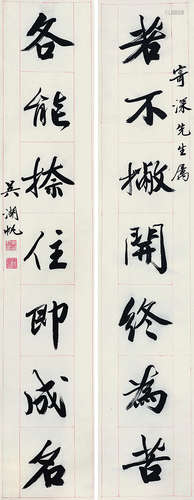 寄深先生屬
若不撇開終為苦
各能捺住即成名
吳湖帆